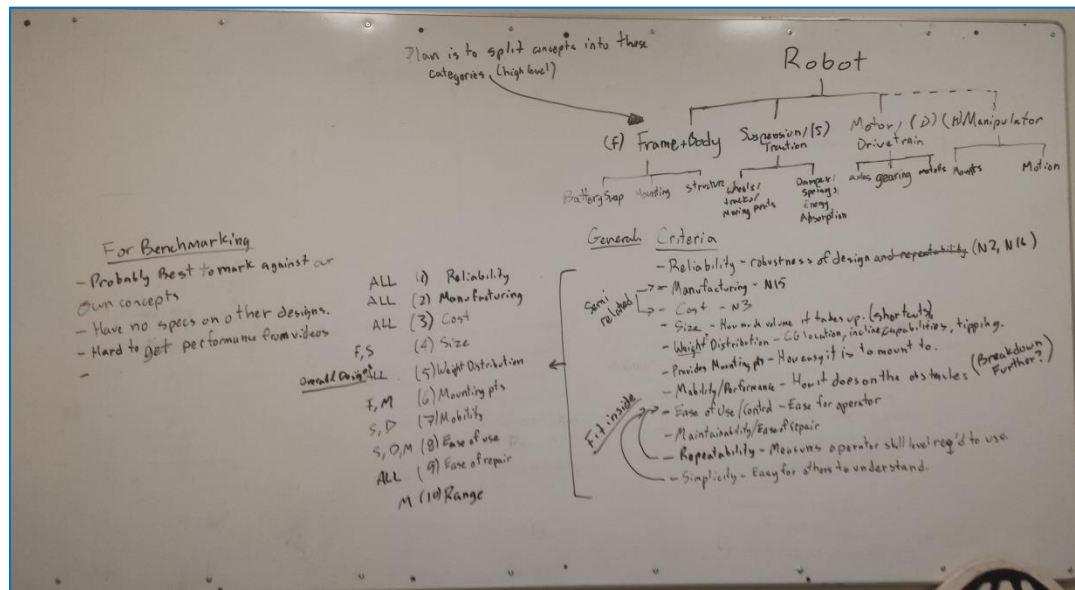 Plan is to split concepts into these
categories (high level)
Robot
(F) Frame+Body
Suspension/(S)
Traction
Motor/(D)
Drivetrain
(M) Manipulator
Battery Swap
Mounting
Structure
Wheels/
tracks/
Moving parts
Damper/
springs
Energy
Absorption
axles
gearing
motors
Mounts
Motion
For Benchmarking
- Probably Best to mark against our
own concepts
- Have no specs on other designs.
- Hard to get performance from videos
-
ALL (1) Reliability
ALL (2) Manufacturing
ALL (3) Cost
F,S (4) Size
Overall Design ALL (5) Weight Distribution
F,M (6) Mounting pts
S,D (7) Mobility
S,D,M (8) Ease of use
ALL (9) Ease of repair
M (10) Range
General Criteria
- Reliability - robustness of design and repeatability (N2, N16)
Semi
related
- Manufacturing - N15
- Cost - N3
- Size - How much volume it takes up. (shortcuts)
- Weight Distribution - CG location, incline capabilities, tipping.
- Provides Mounting pts - How easy it is to mount to.
- Mobility/Performance - How it does on the obstacles (Breakdown
Further?)
Fit inside
- Ease of Use/Control - Ease for operator
- Maintainability/Ease of repair
- Repeatability - Measures operator skill level req'd to use.
- Simplicity - Easy for others to understand.